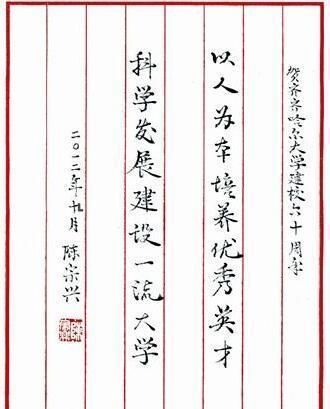 贺齐齐哈尔大学建校六十周年
以人为本培养优秀英才
科学发展建设一流大学
二〇一二年九月 陈宗兴